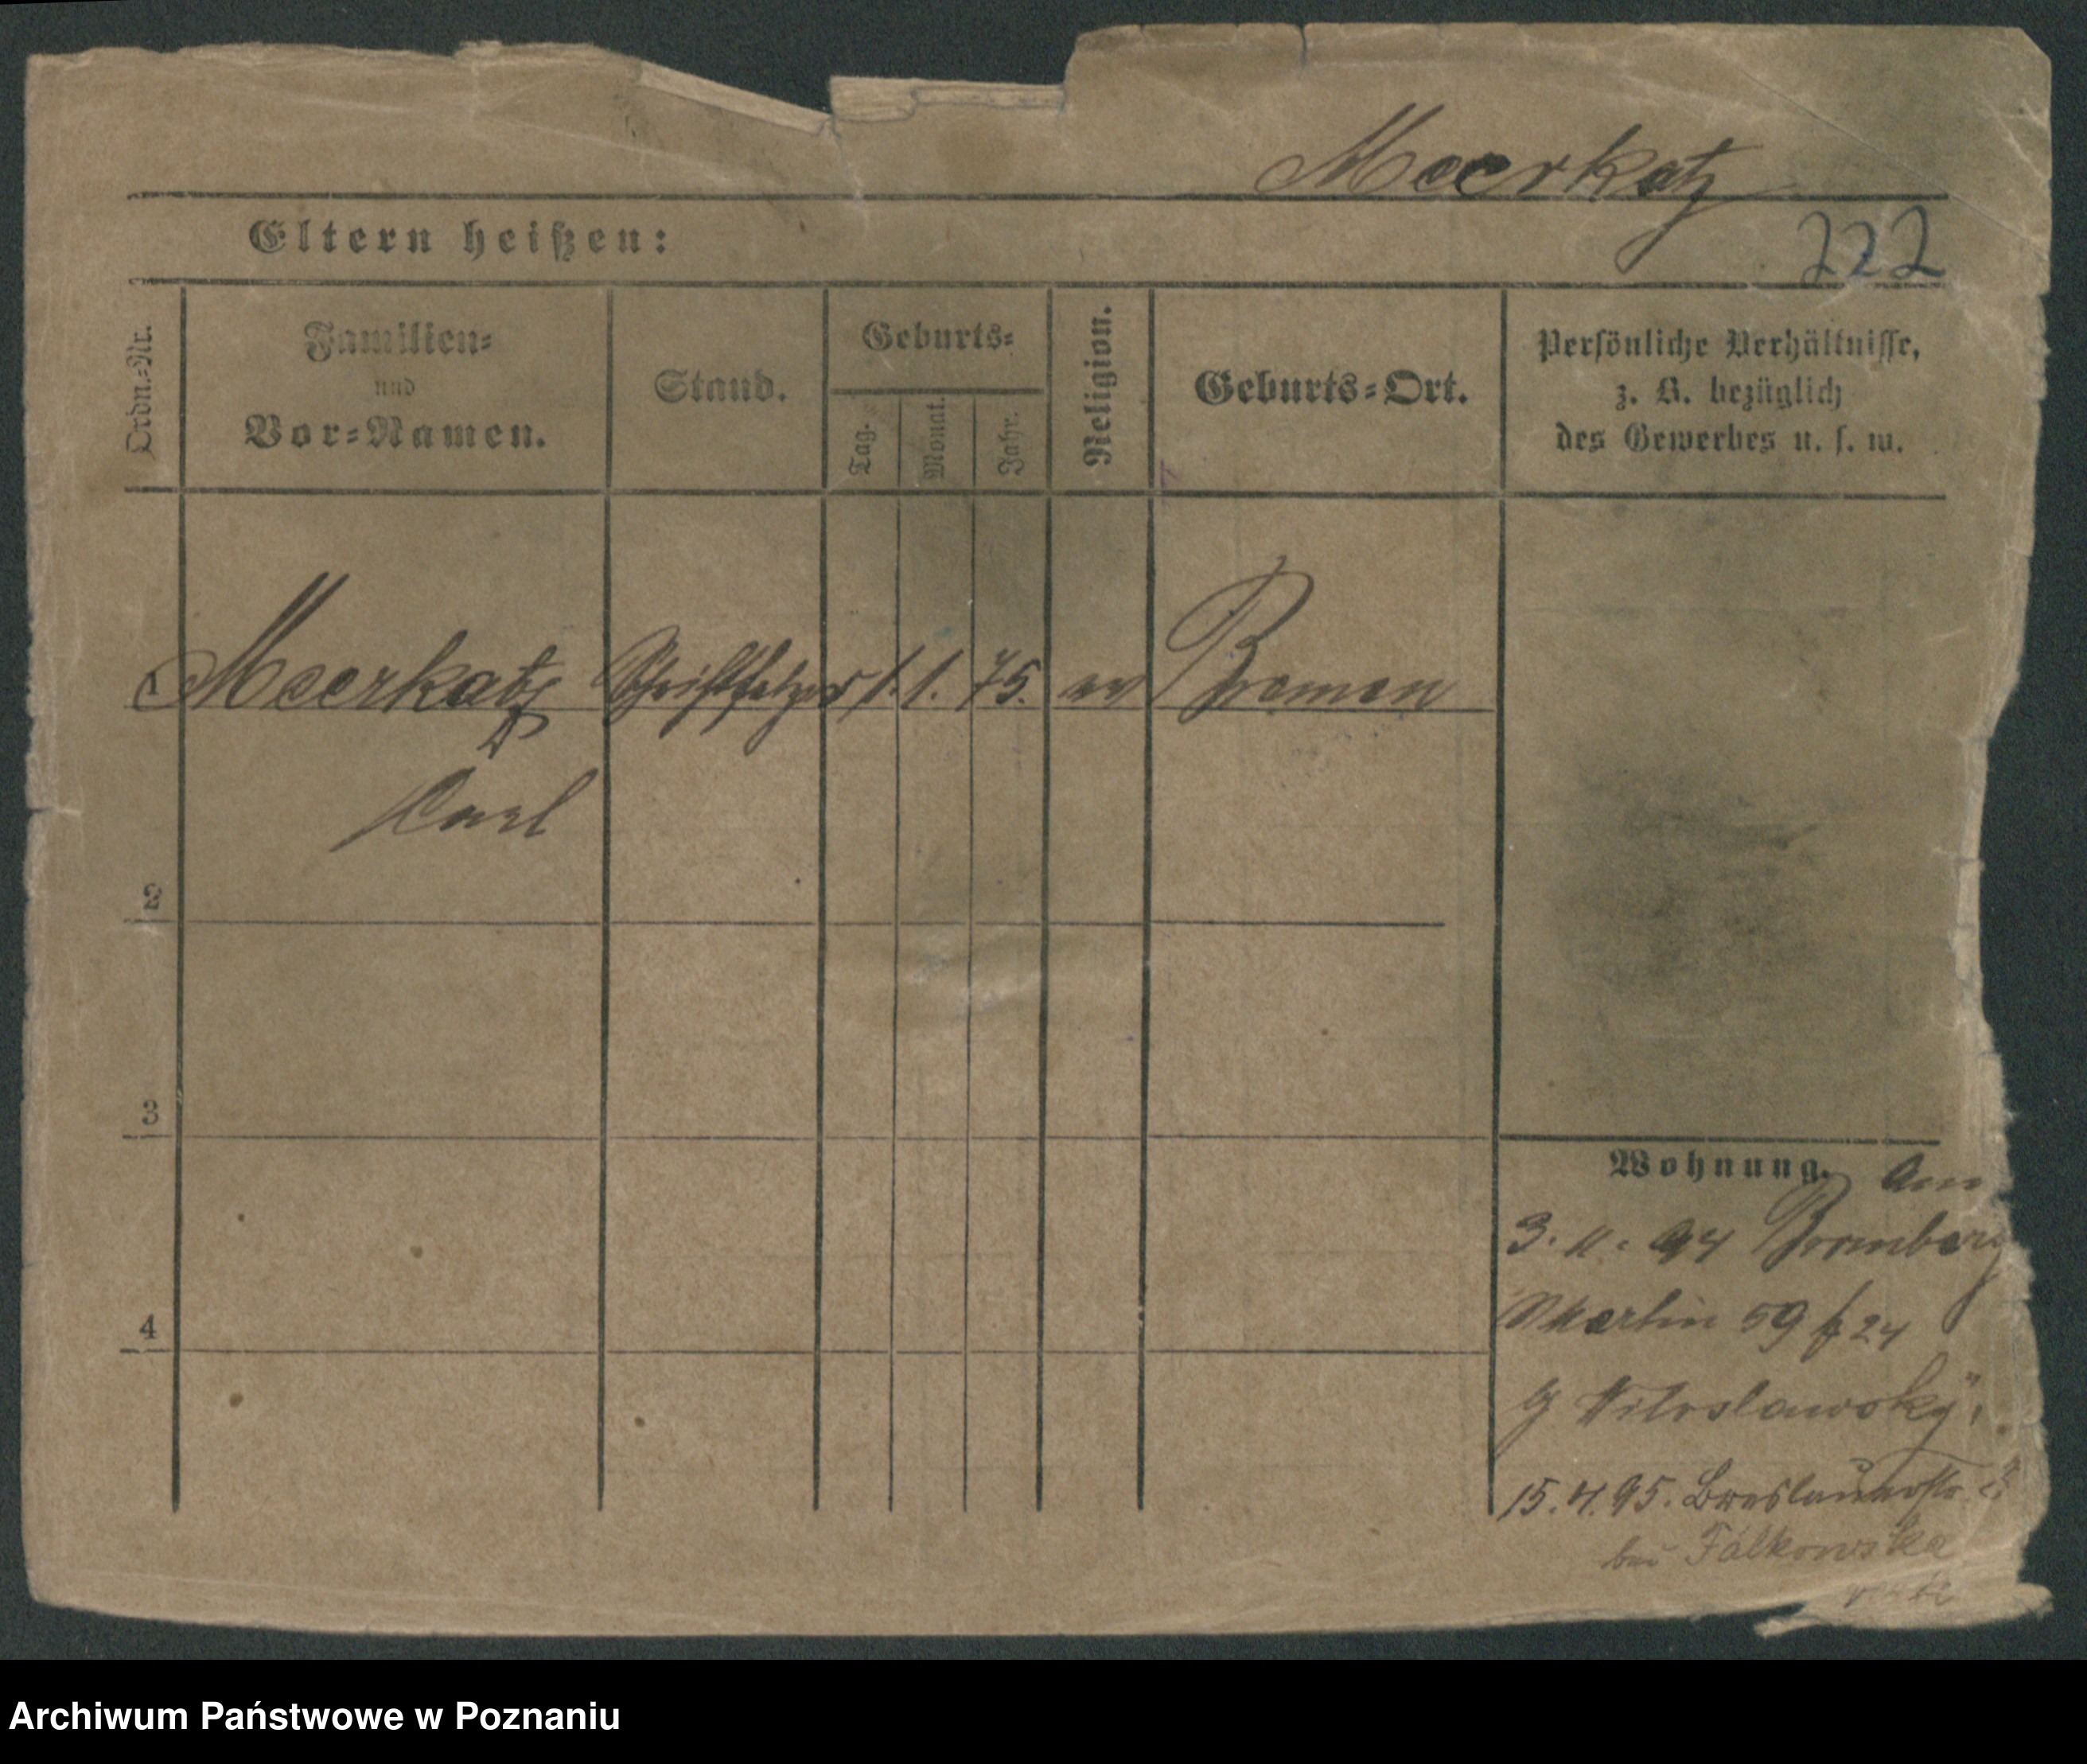 Meerkatz
Eltern heißen:
222
Ordn.-Nr.
Familien-
und
Vor-Namen.
Stand.
Geburts-
Tag.
Monat.
Jahr.
Religion.
Geburts-Ort.
Persönliche Verhältnisse,
z. B. bezüglich
des Gewerbes u. s. w.
1 Meerkatz Schriftsetzer 1. 1. 75. ev Bremen
Carl
2
3
4
Wohnung. Am
3. 11. 94 Bromberg
Martin 59 24
15. 4. 95. Breslauerstr
bei Falkowska
Archiwum Państwowe w Poznaniu